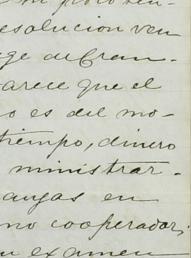 resolucion ven
ge de Cran-
arece que el
o es del mo-
tiempo, dinero
ministrar-
angas en
no cooperador,
un examen